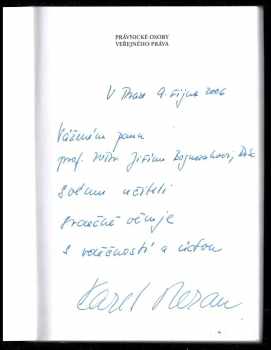 PRÁVNICKÉ OSOBY
VEŘEJNÉHO PRÁVA
V Praze 9. října 2006
Váženému panu
prof. JUDr. Jiřímu
svému učiteli
srdečně věnuje
s vděčností a úctou
Karel Beran